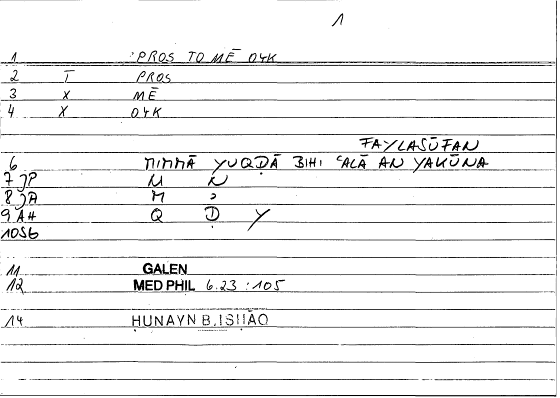 1
1 PROS TO MĒ O4K
2 T PROS
3 X MĒ
4 X O4K
FAYLASŪFAN
6 MIMMĀ YUQḌĀ BIHI ʿALĀ AN YAKŪNA
7 JP M N
8 JA M ʾ
9 AH Q Ḍ Y
10 SG
11 GALEN
12 MED PHIL 6.23 : 105
14 ḤUNAYN B. ISḤĀQ